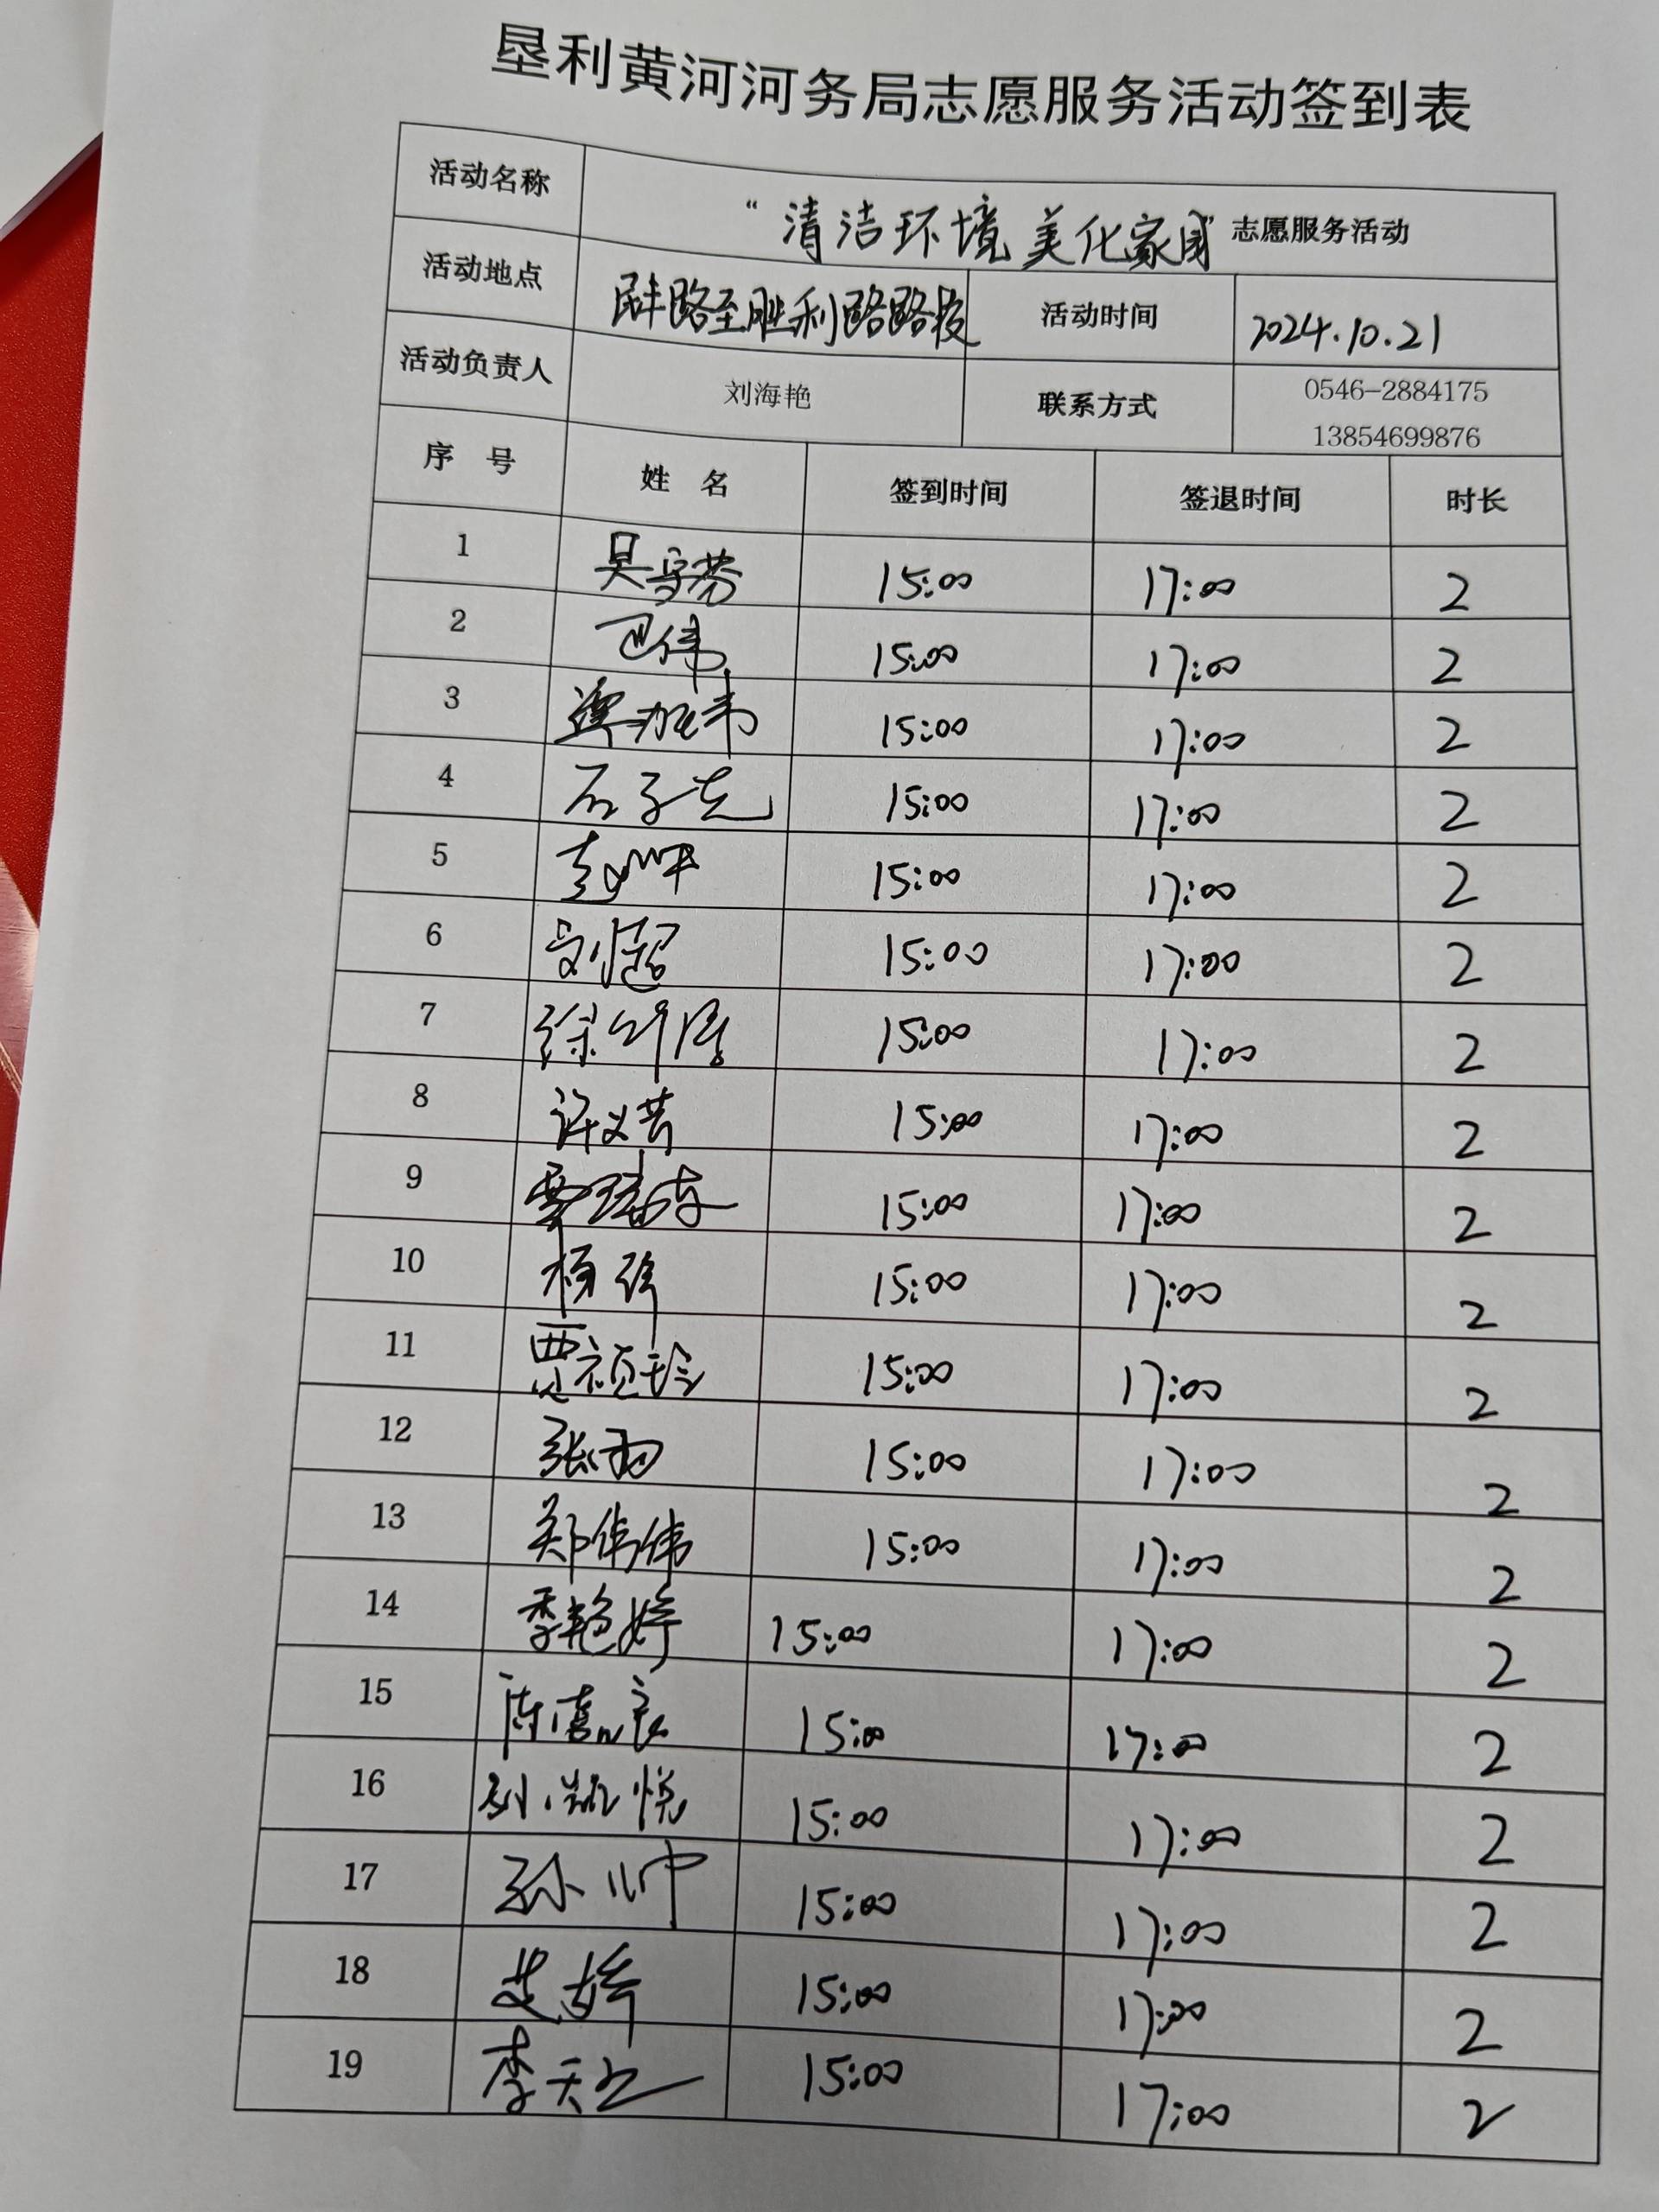 垦利黄河河务局志愿服务活动签到表
活动名称 “清洁环境 美化家园”志愿服务活动
活动地点 民丰路至胜利路路段 活动时间 2024.10.21
活动负责人 刘海艳 联系方式 0546-2884175
13854699876
序 号 姓 名 签到时间 签退时间 时长
1 15:00 17:00 2
2 巴伟 15:00 17:00 2
3 15:00 17:00 2
4 石子克 15:00 17:00 2
5 15:00 17:00 2
6 刘超 15:00 17:00 2
7 15:00 17:00 2
8 许义芸 15:00 17:00 2
9 15:00 17:00 2
10 15:00 17:00 2
11 15:00 17:00 2
12 张雨 15:00 17:00 2
13 郑伟伟 15:00 17:00 2
14 李艳婷 15:00 17:00 2
15 15:00 17:00 2
16 15:00 17:00 2
17 孙帅 15:00 17:00 2
18 15:00 17:00 2
19 15:00 17:00 2